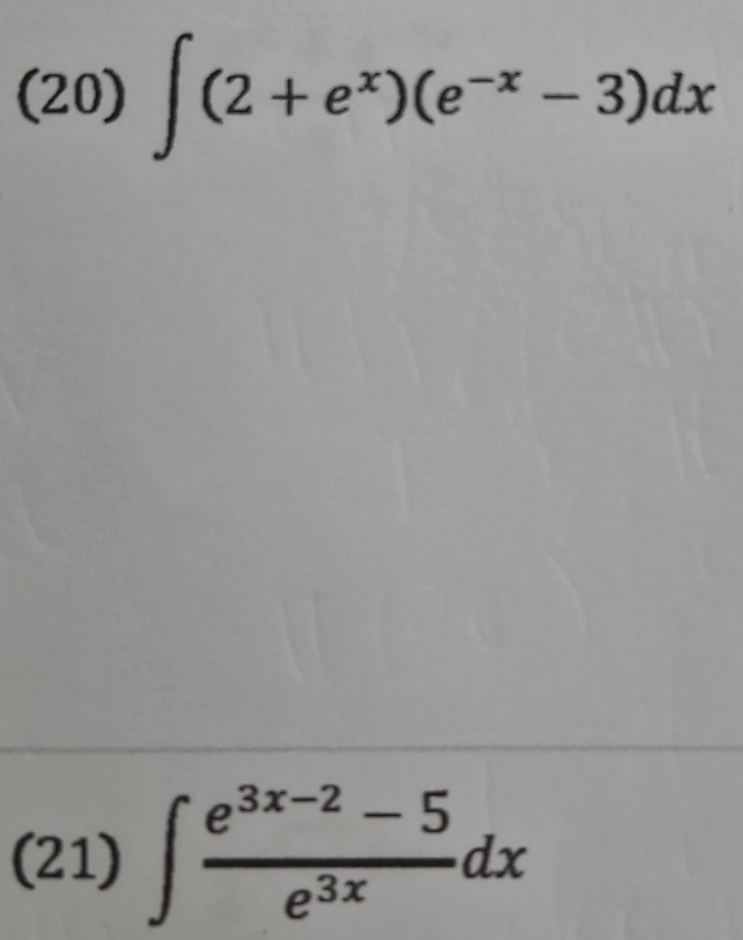 (20) ∫(2 + eˣ)(e⁻ˣ − 3)dx
(21) ∫ (e³ˣ⁻² − 5)/e³ˣ dx